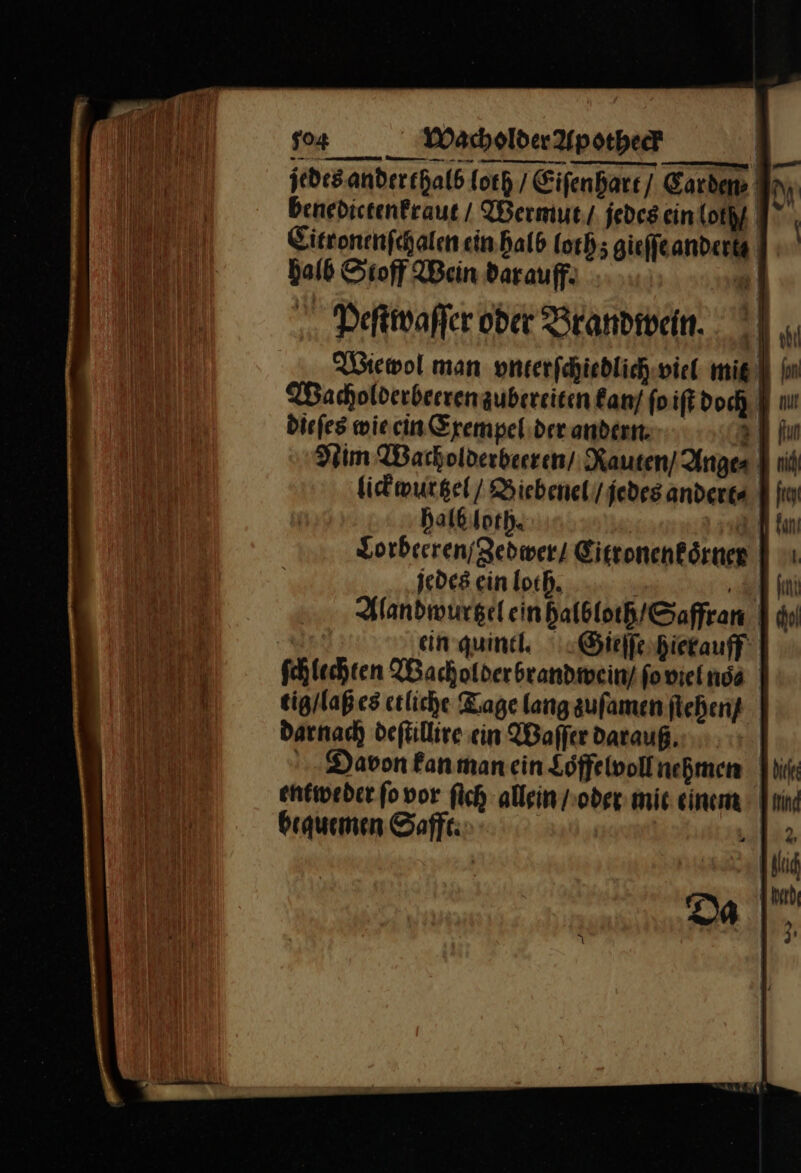 504 Wacholder Apotheck
jedes anderthalb loth / Eiſenhart / Carden⸗
benedictenkraut / Wermut / jedes ein loth/
Citronenſchalen ein halb loth; gieſſe andert⸗
halb Stoff Wein darauff.
Peſtwaſſer oder Brandwein.
Wiewol man vnterſchiedlich viel mit
Wacholderbeeren zubereiten kan/ ſo iſt doch
dieſes wie ein Exempel der andern.
Nim Wacholderbeeren/ Rauten/ Ange⸗
lickwurtzel / Biebenel / jedes andert⸗
halb loth.
Lorbeeren/Zedwer/ Citronenkoͤrner
jedes ein loth.
Alandwurtzel ein halb loth/Saffran
ein quintl. Gieſſe hierauff
ſchlechten Wacholderbrandwein/ ſo viel noͤ⸗
tig/laß es etliche Tage lang zuſamen ſtehen/
darnach deſtillire ein Waſſer darauß.
Davon kan man ein Loͤffelvoll nehmen
entweder ſo vor ſich allein / oder mit einem
bequemen Safft.
Da